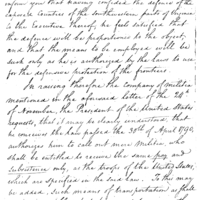 inform you that having confided the defence of the
exposed Counties of the Southwestern parts of Virginia
to the Executive thereof, he feels satisfied that
the defence will be proportioned to the object,
and that the means to be employed will be
such only as is authorized by the laws to use
for the defensive protection of the frontiers.
In raising therefore the Company of Militia
mentioned in the aforesaid letter of the 2d
of November, the President of the United States
requests, that it may be clearly understood, that
he conceives the law passed the 30th of April 1790,
authorizes him to call out more Militia, who
shall be entitled to receive the same pay and
Subsistence only, as the troops of the United States,
which are specified in the said law. To this may
be added, Such means of transportation as